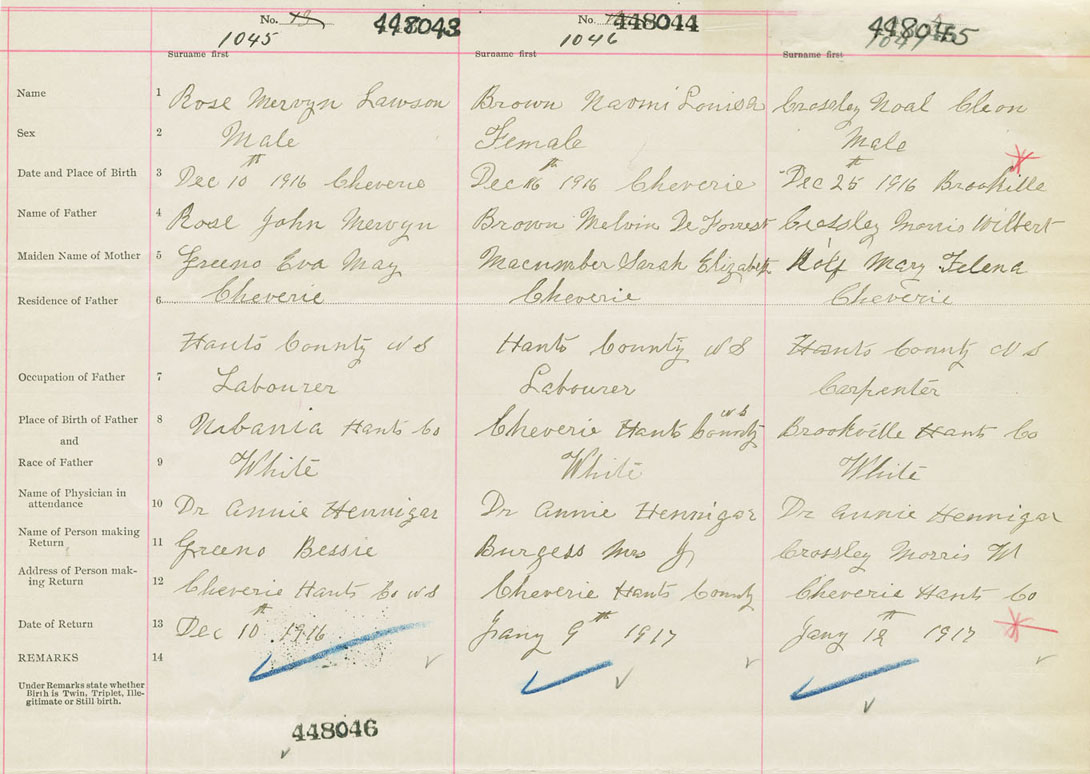 No. 448043
1045
Surname first
No. 448044
1046
Surname first
448045
1047
Surname first
Name 1 Rose Mervyn Lawson Brown Naomi Louisa Crossley Noal Cleon
Sex 2 Male Female Male
Date and Place of Birth 3 Dec 10th 1916 Cheverie Dec 16th 1916 Cheverie Dec 25th 1916 Brookville
Name of Father 4 Rose John Mervyn Brown Melvin De Forrest Crossley Morris Wilbert
Maiden Name of Mother 5 Greeno Eva May Macumber Sarah Elizabeth Rolf Mary Felena
Residence of Father 6 Cheverie Cheverie Cheverie
Hants County N S Hants County N S Hants County N S
Occupation of Father 7 Labourer Labourer Carpenter
Place of Birth of Father 8 Hants Co Cheverie Hants County N S Brookville Hants Co
and
Race of Father 9 White White White
Name of Physician in
attendance 10 Dr Annie Hennigar Dr Annie Hennigar Dr Annie Hennigar
Name of Person making
Return 11 Greeno Bessie Burgess Mrs J Crossley Morris W
Address of Person mak-
ing Return 12 Cheverie Hants Co N S Cheverie Hants County Cheverie Hants Co
Date of Return 13 Dec 10th 1916 Jany 9th 1917 Jany 12th 1917
REMARKS 14
Under Remarks state whether
Birth is Twin, Triplet, Ille-
gitimate or Still birth.
448046